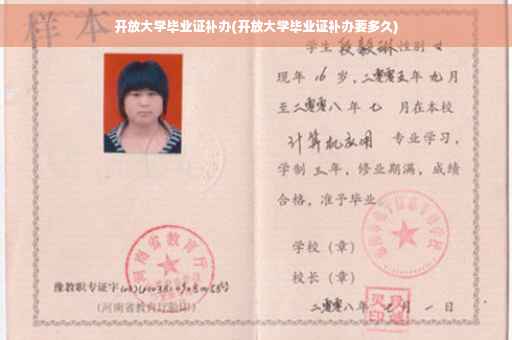 开放大学毕业证补办(开放大学毕业证补办要多久)
样本
学生 段毅琳 性别 女
现年 16 岁，二零零五年 九 月
至二零零八 年 七 月在本校
计算机应用 专业学习，
学制 三 年，修业期满，成绩
合格，准予毕业
学校（章）
校长（章）
二零零八年 七 月 一 日
河南省教育厅
豫教职专证字
(河南省教育厅验印)